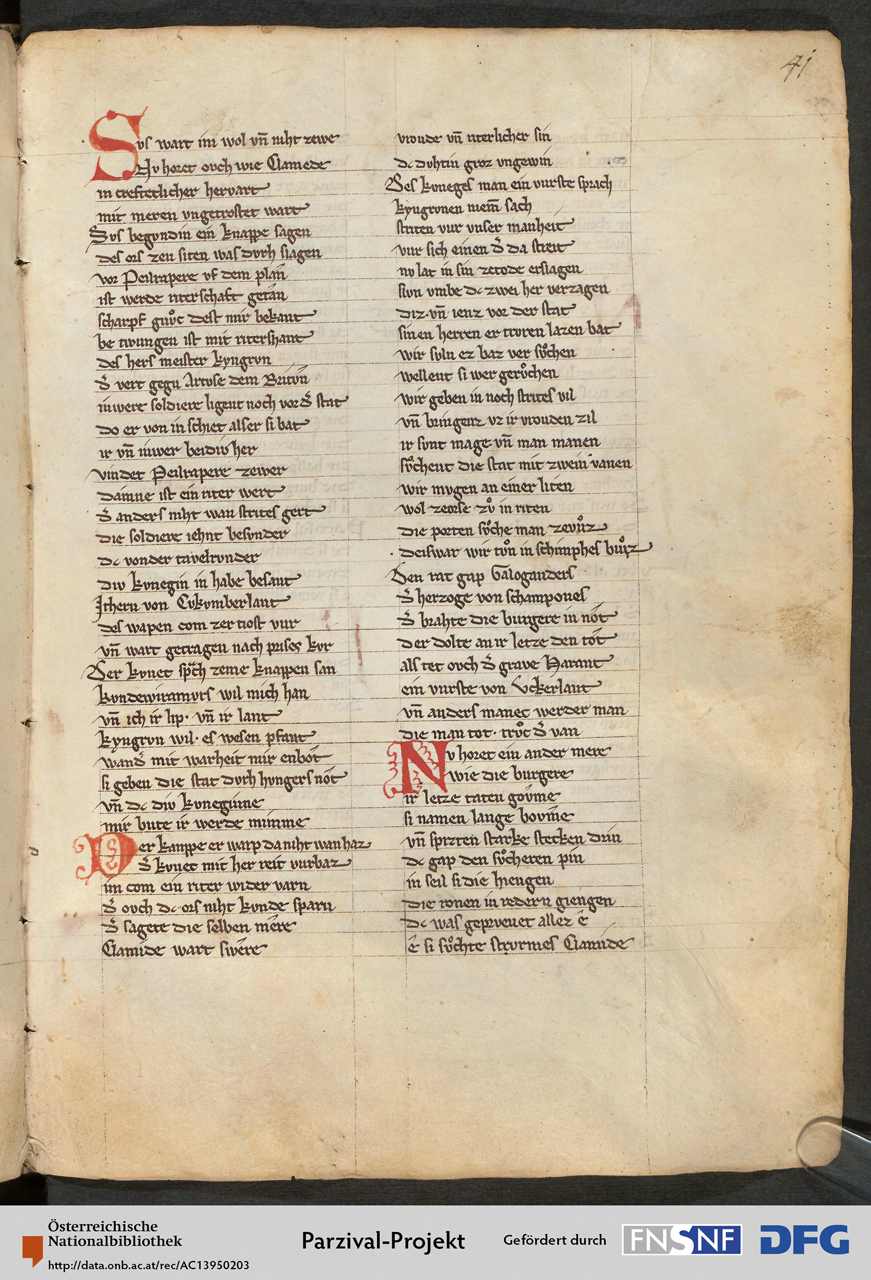 41
Svs wart im wol vn̄ niht zewe
Nv horet ovch wie Clamede
in creftetlicher hervart
mit meren vngetrostet wart
Svs begondin ein knappe sagen
des ors zen siten was dvrh slagen
vor Peilrapere vf dem plan
ist werde riterschaft getan
scharpf gnvͦc dest mir bekant
be twungen ist mit ritershant
des hers meister kyngrvn
dˢ vert gegn Artvse dem Britvn
inwere soldiere ligent noch vor dˢ stat
do er von in schiet alser si bat
ir vn̄ inwer beidiv her
vindet Peilrapere zewer
dainne ist ein riter wert
dˢ anders niht wan strites gert
die soldiere iehnt besvnder
dc vonder tavelrvnder
div kvnegin in habe besant
Ithern von Cvkvmberlant
des wapen com zer tiost vur
vn̄ wart getragen nach prises kvr
Der kvnec sp̄ch zeme knappen san
kvndewiramvrs wil mich han
vn̄ ich ir lip · vn̄ ir lant
kyngrvn wil · es wesen pfant
wandˢ mit warheit mir enbot
si geben die stat dvrh hvngers not
vn̄ dc div kvneginne
mir bvte ir werde minne
Der knappe er warp da niht wan haz
dˢ kvnec mit her reit vurbaz
im com ein riter wider varn
dˢ ovch dc ors niht kvnde sparn
dˢ sagete die selben mere
Clamide wart swere
vrovde vn̄ riterlicher sin
dc dvhtin groz vngewin
Des kvneges man ein vurste sprach
kyngrvnen niem̄ sach
striten vur vnser manheit
vur sich einen dˢ da streit
nv lat in sin zetode erslagen
svln vmbe dc zwei her verzagen
diz vn̄ ienz vor der stat
sinen herren er trvren lazen bat
wir svln ez baz ver svͦchen
wellent si wer gervͦchen
wir geben in noch strites vil
vn̄ bringenz vz ir vrovden zil
ir svnt mage vn̄ man manen
svͦchent die stat mit zwein vanen
wir mvgen an einer liten
wol zeorse zvͦ in riten
die porten svͦche man zevuͦz
deiswar wir tvͦn in schimphes bvͦz
Den rat gap Galoganders
dˢ herzoge von schampones
dˢ brahte die burgere in not
der dolte an ir letze den tot
als tet ovch dˢ grave Narant
ein vurste von Vckerlant
vn̄ anders manec werder man
die man tot · trvͦc dˢ van
Nv horet ein ander mere
wie die burgere
ir letze taten govme
si namen lange bovme
vn̄ sprzten starke stecken drin
dc gap den svͦcheren pin
in seil si die hiengen
die ronen in redern giengen
dc was geprvevet allez e
e si svͦchte stvrmes Clamide
Österreichische
Nationalbibliothek
http://data.onb.ac.at/rec/AC13950203
Parzival-Projekt
Gefördert durch
FNSNF
DFG